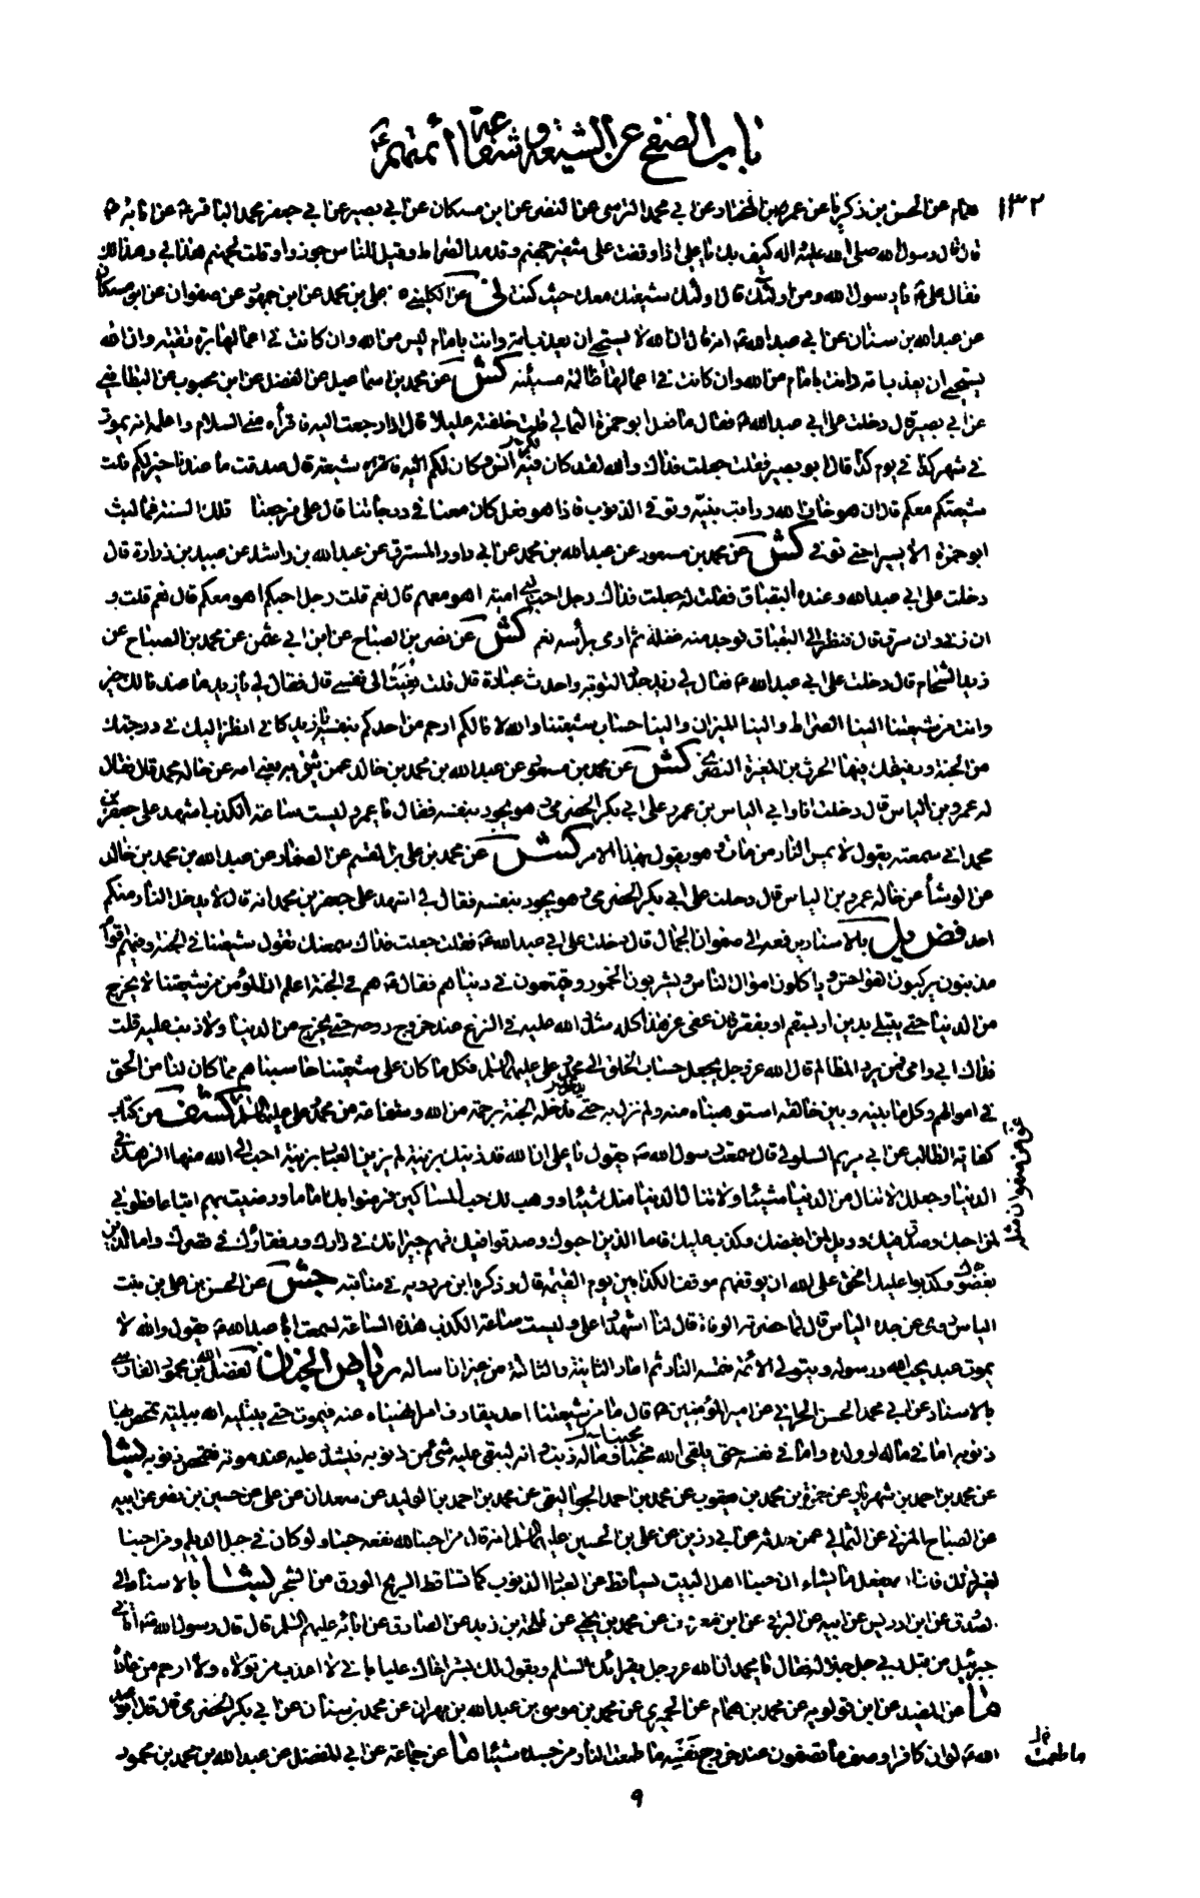 باب الصفح عن الشيعة وشفاعة أئمتهم
١٣٢
همام عن الحسن بن زكريا عن عمر بن المختار عن ابي محمد النرسي عن النضر عن ابن مسكان عن ابي بصير عن ابي جعفر محمد الباقر ع عن آبائه ع
قال قال رسول الله صلى الله عليه اله كيف بك يا علي اذا وقفت على شفير جهنم وقد مد الصراط وقيل للناس جوزوا وقلت لجهنم هذا لي وهذا لك
فقال علي ع يا رسول الله ومن اولئك قال اولئك شيعتك معك حيث كنت ني عن الكليني علي بن محمد عن ابن جمهور عن صفوان عن ابن مسكان
عن عبد الله بن سنان عن ابي عبد الله ع انه قال ان الله لا يستحيي ان يعذب امة دانت بامام ليس من الله وان كانت في اعمالها برة تقية وان الله
يستحيي ان يعذب امة دانت بامام من الله وان كانت في اعمالها ظالمة مسيئة كش عن محمد بن اسماعيل عن الفضل عن ابن محبوب عن البطائني
عن ابي بصير قال دخلت على ابي عبد الله ع فقال ما فعل ابو حمزة الثمالي قلت خلفته عليلا قال اذا رجعت اليه فاقرأه مني السلام واعلمه انه يموت
في شهر كذا في يوم كذا قال ابو بصير فقلت جعلت فداك والله لقد كان فيه انس وكان لكم شيعة قال صدقت ما عندنا خير لكم قلت
شيعتكم معكم قال ان هو خاف الله وراقب نبيه وتوقى الذنوب فاذا هو فعل كان معنا في درجاتنا قال علي فرجعنا تلك السنة فما لبث
ابو حمزة الا يسيرا حتى توفي كش عن محمد بن مسعود عن عبد الله بن محمد عن ابي داود المسترق عن عبد الله بن راشد عن عبيد بن زرارة قال
دخلت على ابي عبد الله وعنده البقباق فقلت له جعلت فداك رجل احب بني امية اهو معهم قال نعم قلت رجل احبكم اهو معكم قال نعم قلت و
ان زنى وان سرق قال فنظر الى البقباق فوجد منه غفلة ثم اومى برأسه نعم كش عن نصر بن الصباح عن ابن ابي عثمن عن محمد بن الصباح عن
زيد الشحام قال دخلت على ابي عبد الله ع فقال لي يا زيد جدد التوبة واحدث عبادة قال قلت نعيت الي نفسي قال فقال لي يا زيد ما عندنا لك خير
وانت من شيعتنا الينا الصراط والينا الميزان والينا حساب شيعتنا والله لانا لكم ارحم من احدكم بنفسه يا زيد كاني انظر اليك في درجتك
من الجنة ورفيقك فيها الحرث بن المغيرة النصري كش عن محمد بن مسعود عن عبد الله بن محمد بن خالد عمن يثق به يعني امه عن خاله محمد قال فقال
له عمرو بن الياس قال دخلت انا وابي الياس بن عمرو على ابي بكر الحضرمي وهو يجود بنفسه فقال يا عمرو ليست ساعة الكذب اشهد على جعفر بن
محمد اني سمعته يقول لا يمس النار من مات وهو يقول بهذا الامر كش عن محمد بن علي بن القسم عن الصفار عن عبد الله بن محمد بن خالد
عن الوشأ عن خاله عمرو بن الياس قال دخلت على ابي بكر الحضرمي وهو يجود بنفسه فقال لي اشهد على جعفر بن محمد انه قال لا يدخل النار منكم
احد فض يل بالاسناد يرفعه الى صفوان الجمال قال دخلت على ابي عبد الله ع فقلت جعلت فداك سمعتك تقول شيعتنا في الجنة وفيهم اقوام
مذنبون يركبون الفواحش وياكلون اموال الناس ويشربون الخمور ويتمتعون في دنياهم فقال ع هم في الجنة اعلم ان المؤمن من شيعتنا لا يخرج
من الدنيا حتى يبتلى بدين او بسقم او بفقر فان عفى عن هذا كله شدد الله عليه في النزع عند خروج روحه حتى يخرج من الدنيا ولا ذنب عليه قلت
فداك ابي وامي فمن يرد المظالم قال الله عز وجل يجعل حساب الخلق الى محمد وعلي عليهما السلم فكل ما كان على شيعتنا حاسبناهم مما كان لنا من الحق
في اموالهم وكل ما بينه وبين خالقه استوهبناه منه ولم نزل به حتى ندخله الجنة برحمة من الله وشفاعة من محمد وعلي عليهما السلم كشف من كتاب
كفاية الطالب عن ابي مريم السلولي قال سمعت رسول الله ص يقول يا علي ان الله قد زينك بزينة لم يزين العباد بزينة احب الى الله منها الزهد في
الدنيا وجعلك لا تنال من الدنيا شيئا ولا تنال الدنيا منك شيئا ووهب لك حب المساكين فرضوا بك اماما ورضيت بهم اتباعا فطوبى
لمن احبك وصدق فيك وويل لمن ابغضك وكذب عليك فاما الذين احبوك وصدقوا فيك فهم جيرانك في دارك ورفقاؤك في قصرك واما الذين
بغضوك وكذبوا عليك فحق على الله ان يوقفهم موقف الكذابين يوم القيمة قال وذكره ابن مردويه في مناقبه جش عن الحسن بن علي بن بنت
الياس روى عن جده الياس قال لما حضرته الوفاة قال لنا اشهدوا علي وليست ساعة الكذب هذه الساعة لسمعت ابا عبد الله ع يقول والله لا
يموت عبد يحب الله ورسوله ويتولى الائمة فتمسه النار ثم اعاد الثانية والثالثة من غير ان اساله رياض الجنان لفضل الله بن محمود الفارسي
بالاسناد عن ابي محمد الحسن الحراني عن امير المؤمنين ع قال ما من شيعتنا احد يقارف امرا نهيناه عنه فيموت حتى يبتليه الله ببلية تمحص بها
ذنوبه اما في ماله او ولده واما في نفسه حتى يلقى الله محبنا وماله ذنب وانه ليبقى عليه شئ من ذنوبه فيشدد عليه عند موته فتمحص ذنوبه بشا
عن محمد بن احمد بن شهريار عن حمزة بن محمد بن يعقوب عن محمد بن احمد الجواليقي عن محمد بن احمد بن الوليد عن سعدان عن علي عن حسين بن نصر عن ابيه
عن الصباح المزني عن الثمالي عمن حدثه عن ابي رزين عن علي بن الحسين عليهما السلم انه قال من احبنا لله نفعه حبنا ولو كان في جبل الديلم ومن احبنا
لغير ذلك فان الله يفعل ما يشاء ان حبنا اهل البيت يساقط عن العباد الذنوب كما تساقط الريح الورق من الشجر بشا بالاسناد الى
الصدوق عن ابن ادريس عن ابيه عن البرقي عن ابن معروف عن محمد بن يحيى عن طلحة بن زيد عن الصادق عن ابائه عليهم السلم قال قال رسول الله ص اتاني
جبرئيل من قبل ربي جل جلاله فقال يا محمد ان الله عز وجل يقرئك السلم ويقول لك بشر اخاك عليا باني لا اعذب من تولاه ولا ارحم من عاداه
ما عن المفيد عن ابن قولويه عن محمد بن همام عن الحميري عن محمد بن موسى بن عبد الله بن مهران عن محمد بن سنان عن ابي بكر الحضرمي قال قال ابو عبد
الله ع لو ان كافرا وصف ما تصفون عند خروج نفسه ما طعمت النار من جسده شيئا ما عن جماعة عن ابي المفضل عن عبد الله بن محمد بن محمود
عن صفوان مثله
ما طعمت
٩